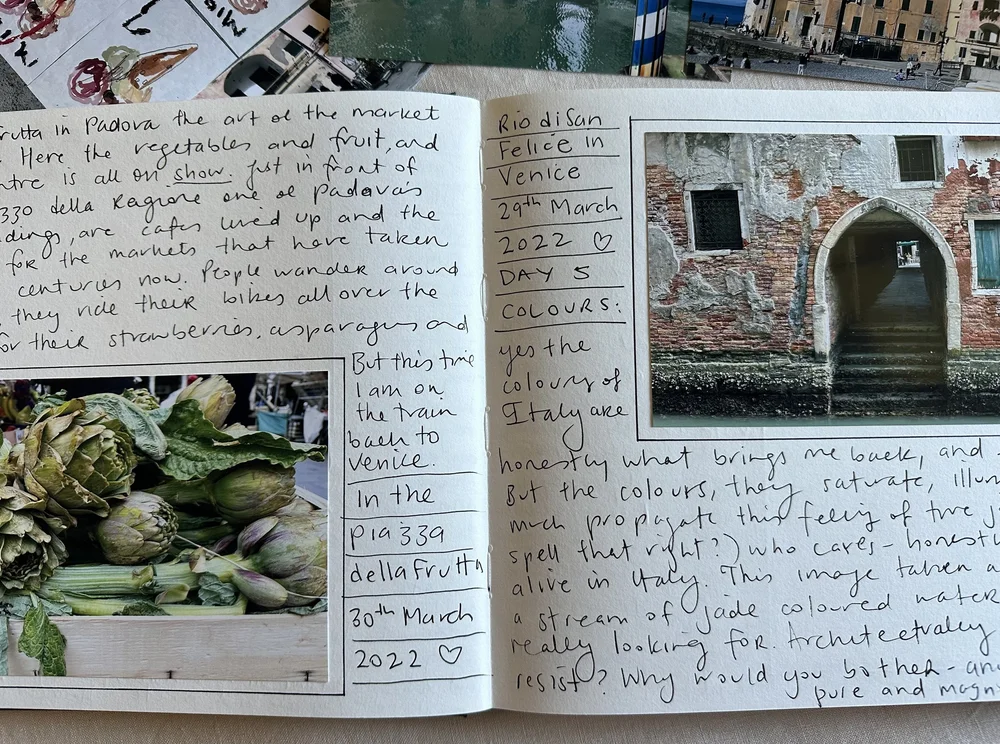 frutta in Padova the art of the market
Here the vegetables and fruit, and
ntre is all on show. Just in front of
z30 della Ragione one of Padova's
dings, are cafes lined up and the
for the markets that have taken
centuries now. People wander around
they ride their bikes all over the
for their strawberries, asparagus and
But this time
I am on
the train
back to
Venice.
In the
piazza
della Frutta
30th March
2022 ♡
Rio di San
Felice in
Venice
29th March
2022 ♡
DAY 5
COLOURS:
yes the
colours of
Italy are
honestly what brings me back, and
But the colours, they saturate, illum
much propagate this feeling of
spell that right?) who cares - honestly
alive in Italy. This image taken a
a stream of jade coloured water
really looking for. Architecturally
resist? Why would you bother - an
pure and magn